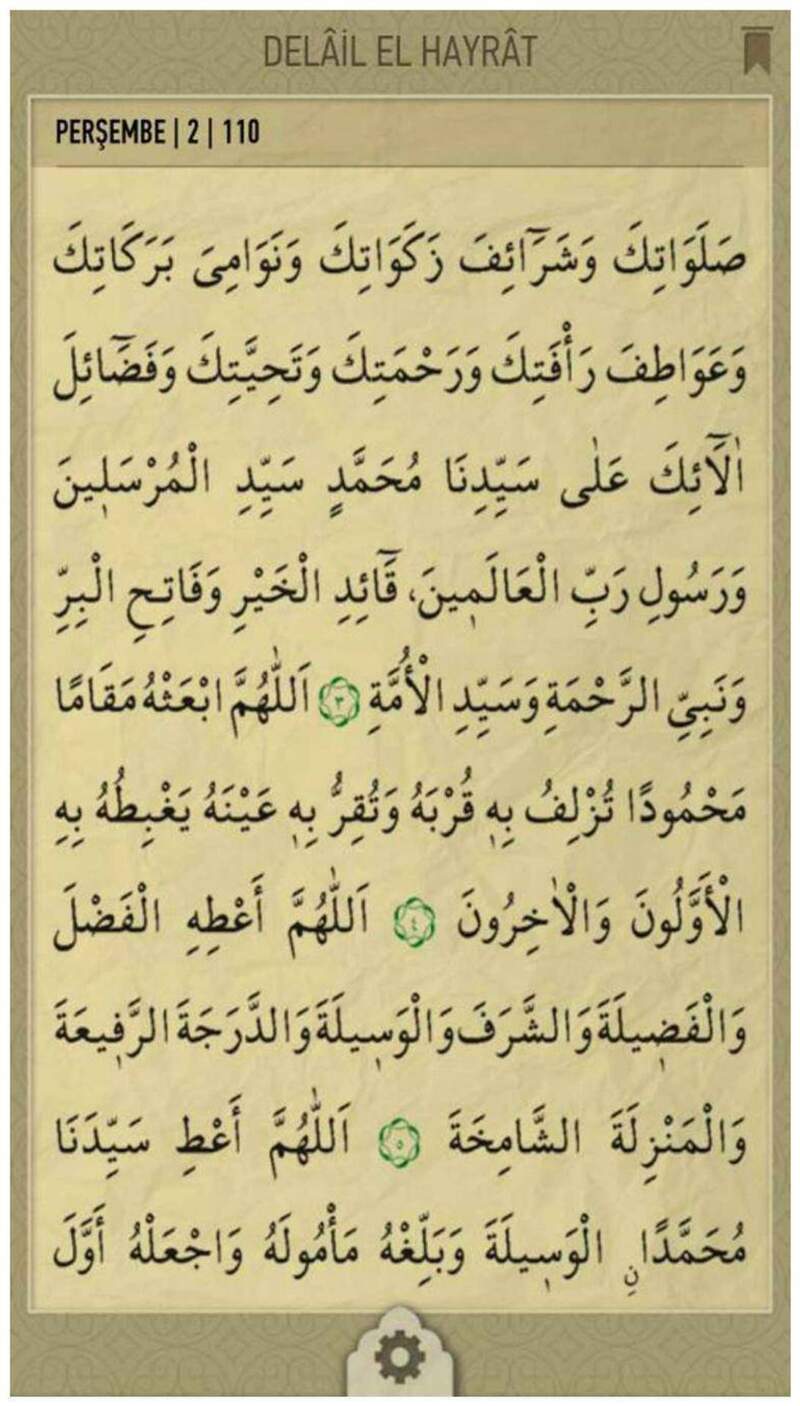 DELÂİL EL HAYRÂT
PERŞEMBE | 2 | 110
صَلَوَاتِكَ وَشَرَٓائِفَ زَكَوَاتِكَ وَنَوَامِىَ بَرَكَاتِكَ
وَعَوَاطِفَ رَأْفَتِكَ وَرَحْمَتِكَ وَتَحِيَّتِكَ وَفَضَٓائِلَ
اٰلَٓائِكَ عَلٰى سَيِّدِنَا مُحَمَّدٍ سَيِّدِ الْمُرْسَلٖينَ
وَرَسُولِ رَبِّ الْعَالَمٖينَ، قَٓائِدِ الْخَيْرِ وَفَاتِحِ الْبِرِّ
وَنَبِيِّ الرَّحْمَةِ وَسَيِّدِ الْأُمَّةِ ٣ اَللّٰهُمَّ ابْعَثْهُ مَقَامًا
مَحْمُودًا تُزْلِفُ بِهٖ قُرْبَهُ وَتُقِرُّ بِهٖ عَيْنَهُ يَغْبِطُهُ بِهِ
الْأَوَّلُونَ وَالْاٰخِرُونَ ٤ اَللّٰهُمَّ أَعْطِهِ الْفَضْلَ
وَالْفَضٖيلَةَ وَالشَّرَفَ وَالْوَسٖيلَةَ وَالدَّرَجَةَ الرَّفٖيعَةَ
وَالْمَنْزِلَةَ الشَّامِخَةَ ٥ اَللّٰهُمَّ أَعْطِ سَيِّدَنَا
مُحَمَّدًا نِ الْوَسٖيلَةَ وَبَلِّغْهُ مَأْمُولَهُ وَاجْعَلْهُ أَوَّلَ